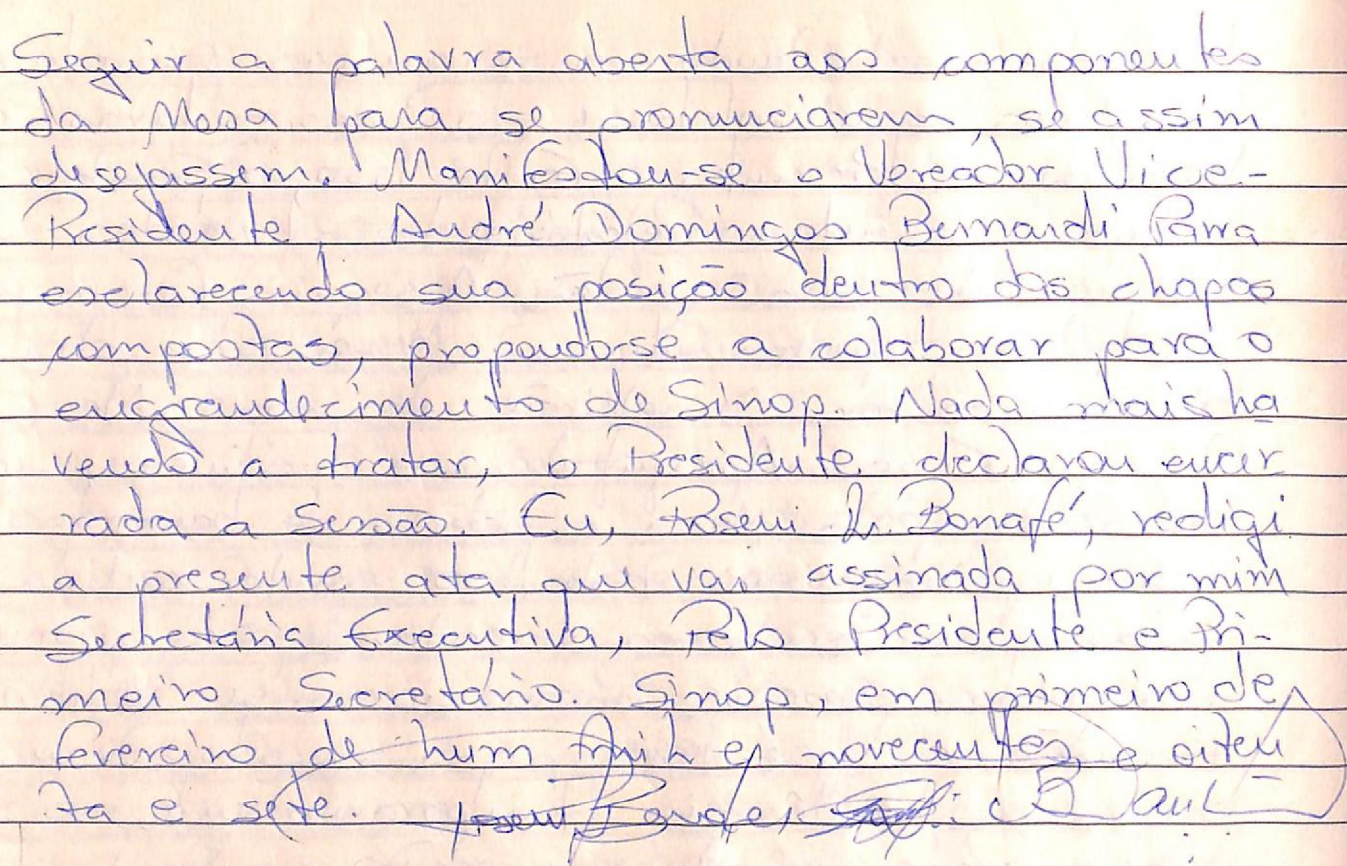 Seguir a palavra aberta aos componentes
da Mesa para se pronunciarem, se assim
desejassem. Manifestou-se o Vereador Vice-
Presidente, André Domingos Bernardi Parra
esclarecendo sua posição dentro das chapas
compostas, propondo-se a colaborar para o
engrandecimento de Sinop. Nada mais ha
vendo a tratar, o Presidente declarou encer
rada a Sessão. Eu, Roseni R. Bonafé, redigi
a presente ata que vai assinada por mim
Secretária Executiva, Pelo Presidente e Pri-
meiro Secretário. Sinop, em primeiro de
fevereiro de hum mil e novecentos e oiten
ta e sete.